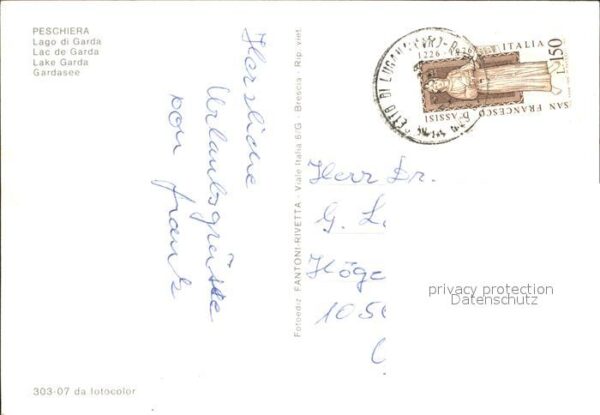 PESCHIERA
Lago di Garda
Lac de Garda
Lake Garda
Gardasee
Herzliche
Urlaubsgrüsse
von Frank
Fotoediz. FANTONI-RIVETTA - Viale Italia 6/G - Brescia - Rip. viet.
ITALIA
L.150
1226
SAN FRANCESCO D'ASSISI
Herr Dr.
G. L
Höge
105
privacy protection
Datenschutz
303-07 da fotocolor